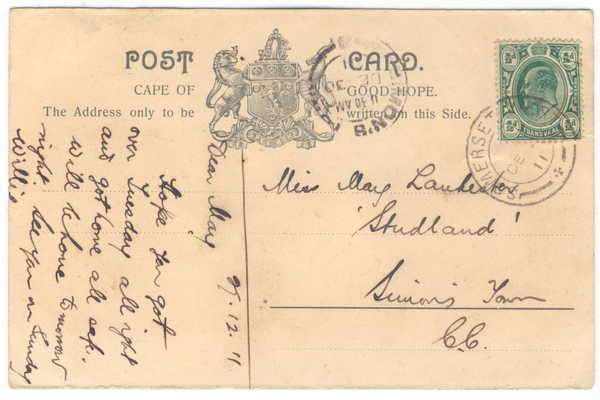 POST CARD.
CAPE OF GOOD HOPE.
The Address only to be written on this Side.
TRANSVAAL
SIMON'S
DE
30
11 30 AM
SOMERSET
DE
11
Dear May
29.12.11.
Hope you got
over Tuesday all right
and got home all
will be home tomorrow
night see you on Sunday
Willie
Miss May Lanchester
'Studland'
Simon's Town
C.C.